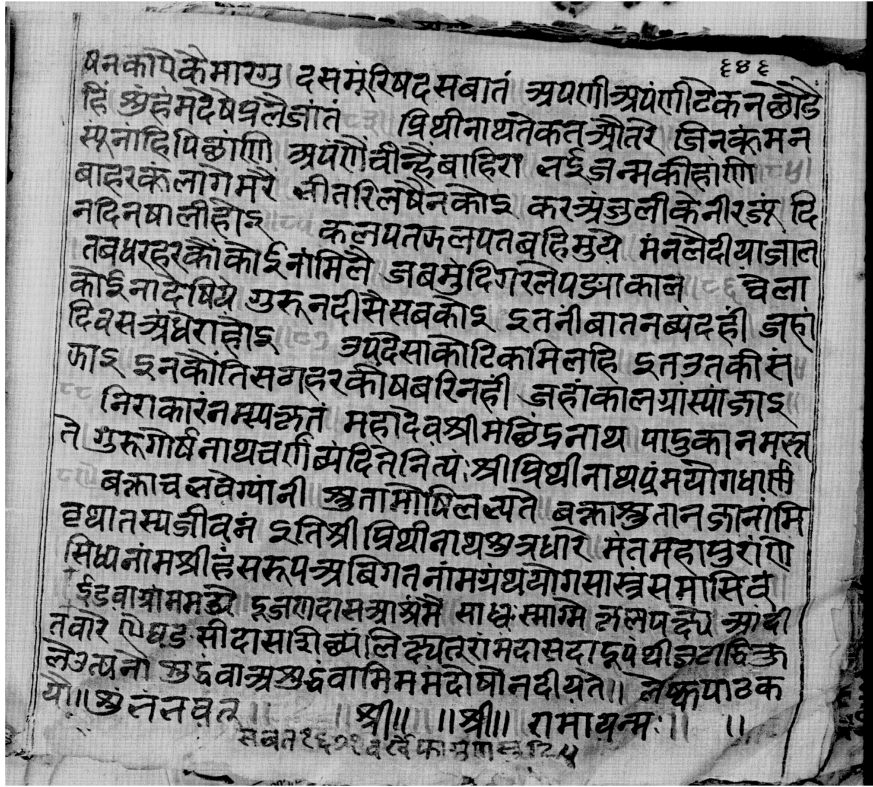 ६४६
षनकापैकेमारगु दसमूरिषदसबातं अपणीअपंणीटेकनछाडै
हिं अंहंमदेषेप्रलैजांतं प्रिथीनाथतेकतऔतरे जिनकंमन
सूंनाहिपिछांणि अपंणैचीन्हैबाहिरा नईजन्मकीहांणि
बाहरकंलागमरै भीतरिलषैनकोइ करअंजुलीकेनीरज्यूं दि
नदिनषालीहोइ कलपतकलपतबहिमुये मंनलैदीयाजाल
तबधरहरकौंकोईनांमिलै जबमुंदिगरलेपड्याकाल चेला
कोईनादेषिये गुरूनदीसैसबकोइ इतनीबातनब्यदही जहां
दिवसअंधेराहोइ उपदेसाकोटिकमिलहि इतउतकीसं
काइ इनकौंतिसगहरकीषबरिनहीं जहांकालग्रांस्यांजाइ
निराकारंनमस्कृतं महादेवश्रीमछिंद्रनाथ पादुकानमस्त
ते गुरूगोर्षनाथचर्ण ब्यंदितेनित्यं श्रीप्रिथीनाथप्रंमयोगधार्णं
बक्ताचलवेग्यांनी श्रुतामोषिलभ्यते बक्ताश्रुतानजानांमि
बृथातस्यजीवनं इतिश्रीप्रिथीनाथशुत्रधारे मंतमहापुरांणे
सिध्यनांमश्रीहंससरूपअबिगतनांमग्रंथयोगसास्त्रंसमासिदं
ईडवाग्रांममध्ये दूजणदासआश्रंमै साधसमागमे
तबारे सीदासशिष्यंलिष्यतूरांमदासदादूपंथी
शुद्धंवाअशुद्धंवामिममंदोषोनदीयते॥ लेष्कपाठक
यो॥ शुभंभवतू॥ ॥श्री॥ ॥श्री॥ रामायन्मः॥ ॥
सबत१६७१वर्षेफागुणसुदि५